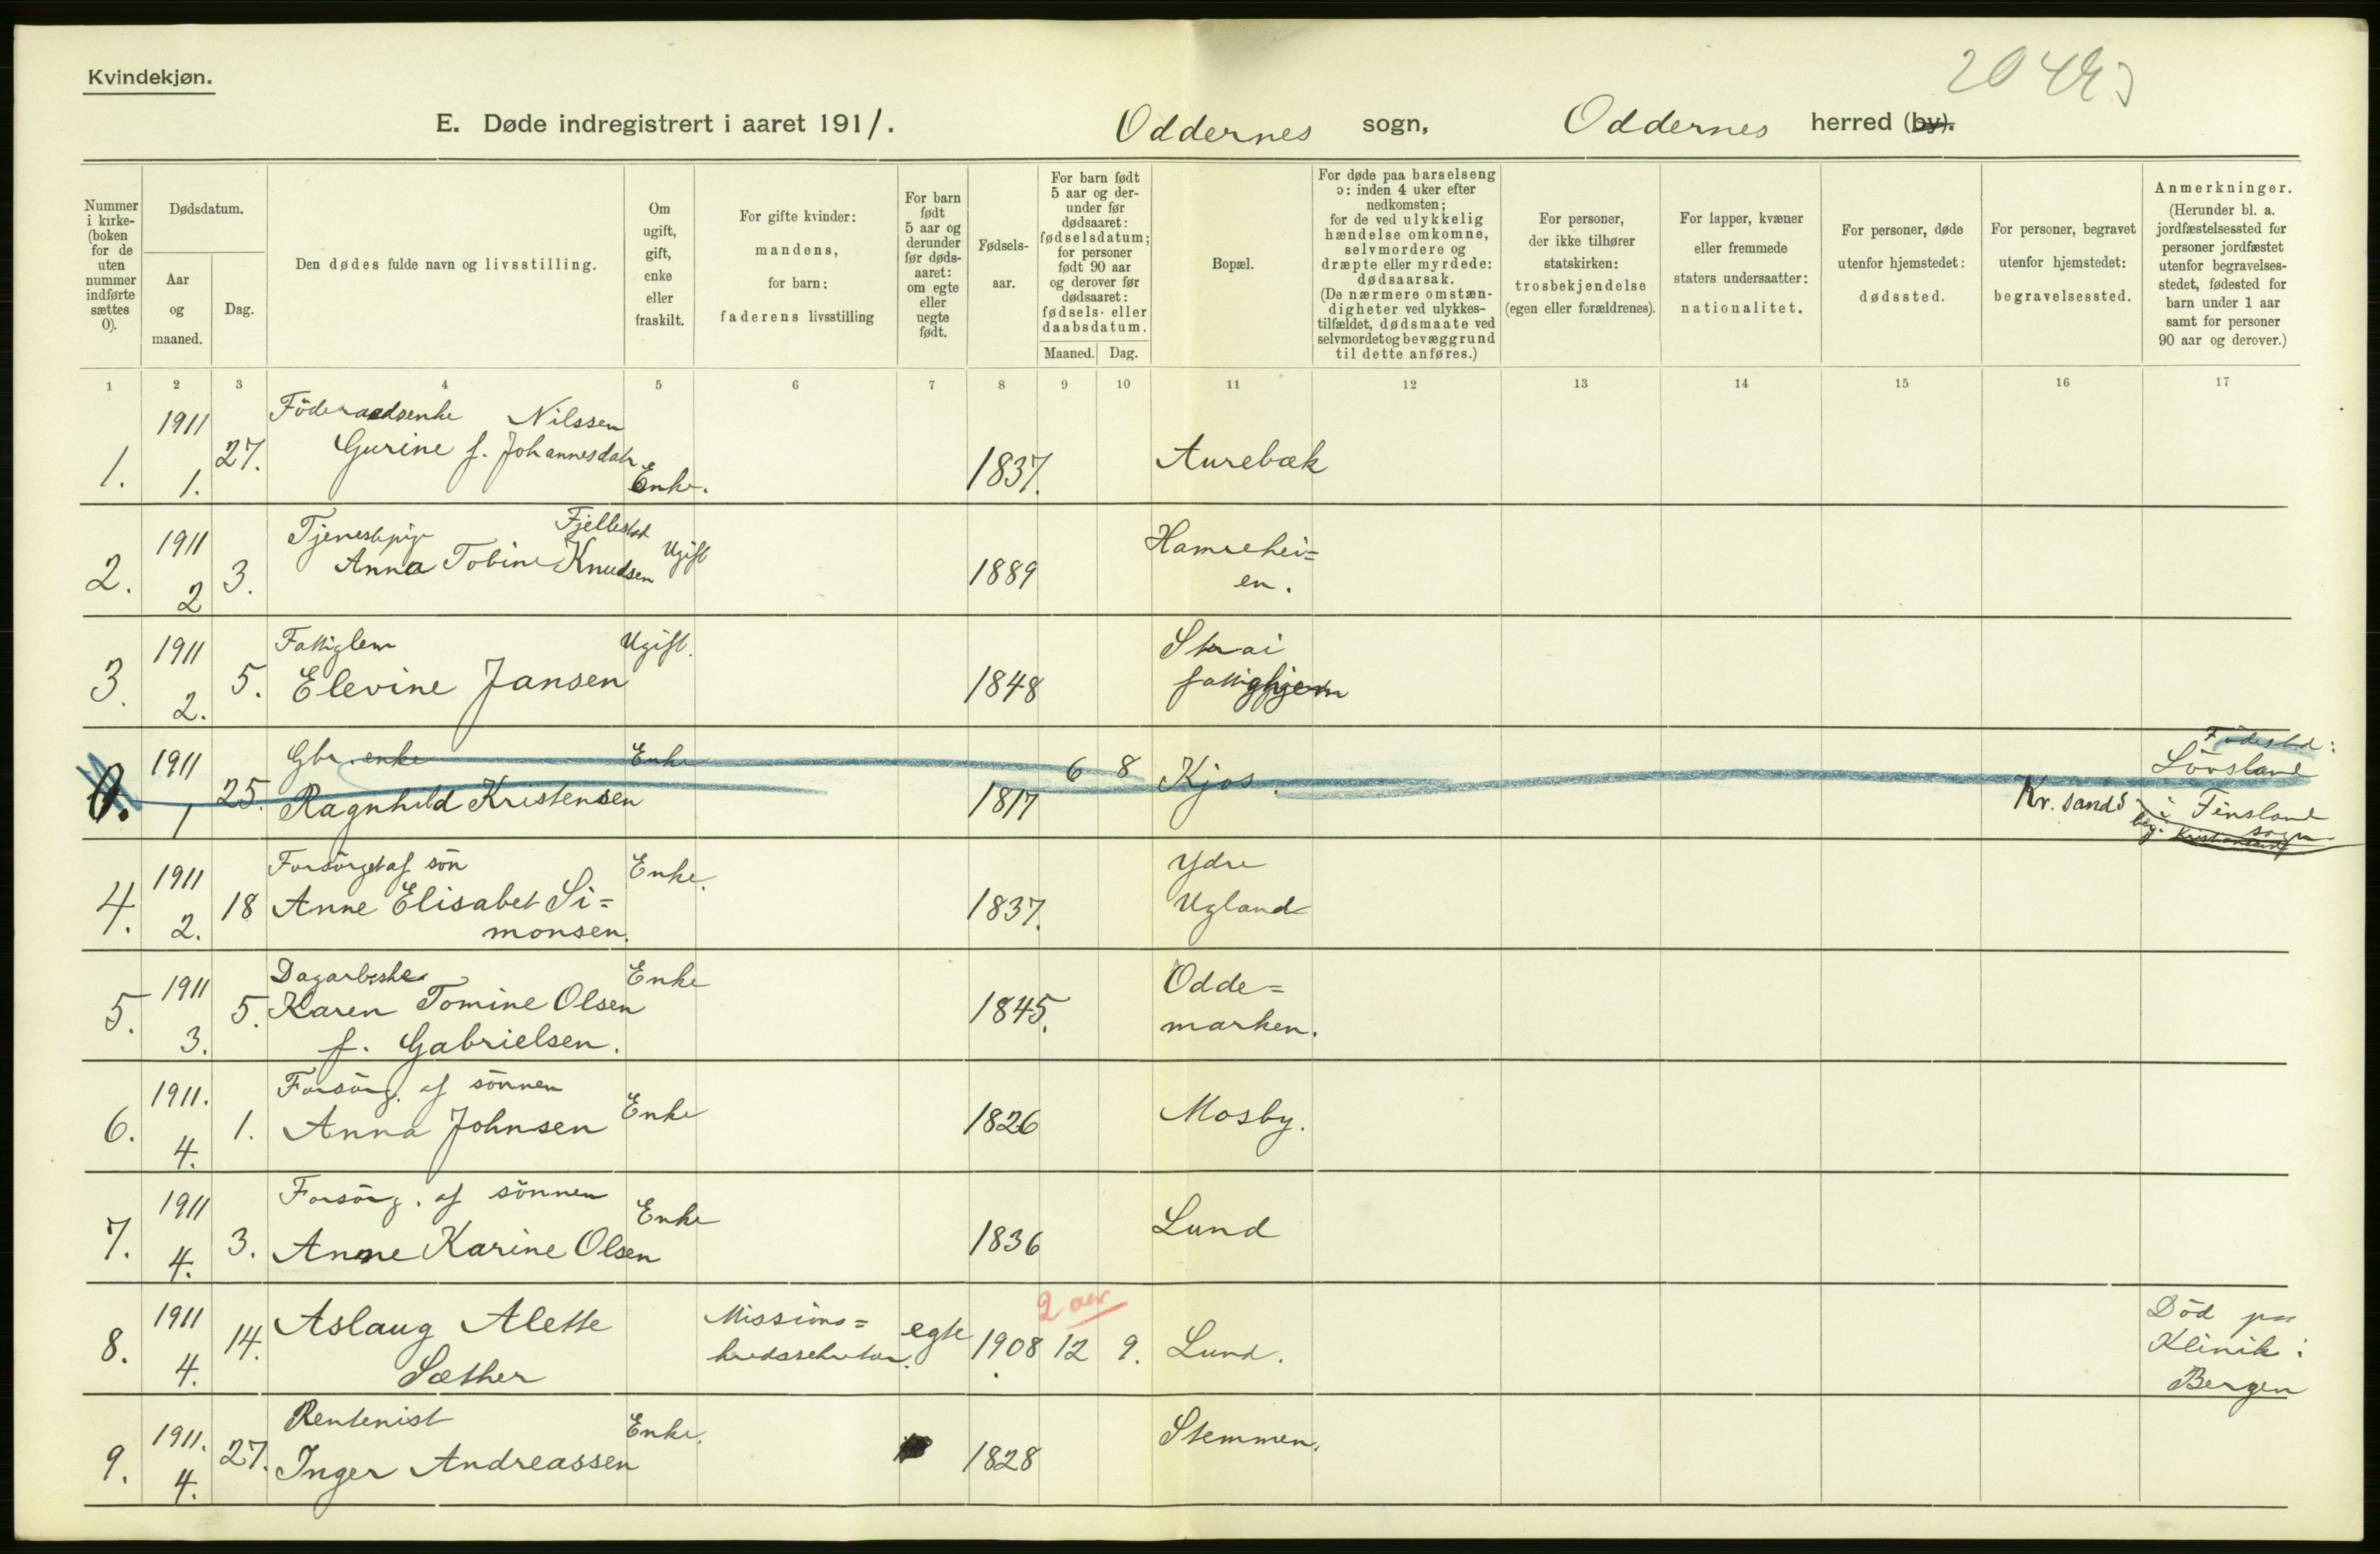 Kvindekjøn.
E. Døde indregistrert i aaret 1911. Oddernes sogn, Oddernes herred (by).
Nummer i kirke- (boken for de uten nummer indførte sættes 0).
Dødsdatum.
Aar og maaned.
Dag.
Den dødes fulde navn og livsstilling.
Om ugift, gift, enke eller fraskilt.
For gifte kvinder: mandens, for barn: faderens livsstilling
For barn født 5 aar og derunder før døds- aaret: om egte eller uegte født.
Fødsels- aar.
For barn født 5 aar og der- under før dødsaaret: fødselsdatum; for personer født 90 aar og derover før dødsaaret: fødsels- eller daabsdatum.
Maaned. Dag.
Bopæl.
For døde paa barselseng ɔ: inden 4 uker efter nedkomsten; for de ved ulykkelig hændelse omkomne, selvmordere og dræpte eller myrdede: dødsaarsak. (De nærmere omstæn- digheter ved ulykkes- tilfældet, dødsmaate ved selvmordet og bevæggrund til dette anføres.)
For personer, der ikke tilhører statskirken: trosbekjendelse (egen eller forældrenes).
For lapper, kvæner eller fremmede staters undersaatter: nationalitet.
For personer, døde utenfor hjemstedet: dødssted.
For personer, begravet utenfor hjemstedet: begravelsessted.
Anmerkninger. (Herunder bl. a. jordfæstelsessted for personer jordfæstet utenfor begravelses- stedet, fødested for barn under 1 aar samt for personer 90 aar og derover.)
1 2 3 4 5 6 7 8 9 10 11 12 13 14 15 16 17
1. 1911 1. 27. Föderaadsenke Nilssen
Gurine f. Johannesdatr Enke. 1837. Aurebæk
2. 1911 2 3. Tjenestepige Fjellestad
Anna Tobine Knudsen Ugift 1889 Hamrehei=
en.
3. 1911 2. 5. Fattiglem Ugift.
Elevine Jansen 1848 Strai
fattighjem
0. 1911 1 25. Gbr. enke Enke
Ragnhild Kristensen 1817 6 8 Kjos. Kr. sand Födested:
Lövsland
i Finsland
sogn
beg. Kristiansand
4. 1911 2. 18 Forsörget af sön Enke.
Anne Elisabet Si=
monsen. 1837. Ydre
Ugland
5. 1911 3. 5. Dagarbeiske Enke
Karen Tomine Olsen
f. Gabrielsen. 1845. Odde=
marken.
6. 1911. 4. 1. Forsörg. af sönnen
Anna Johnsen Enke 1826 Mosby.
7. 1911 4. 3. Forsörg. af sönnen
Anne Karine Olsen Enke 1836 Lund
8. 1911 4. 14. Aslaug Alette
Sæther Missions= egte 1908 12 9. 2 aar Lund. Död paa
Klinik i
Bergen
9. 1911. 4. 27. Rentenist Enke.
Inger Andreassen 1828 Stemmen.